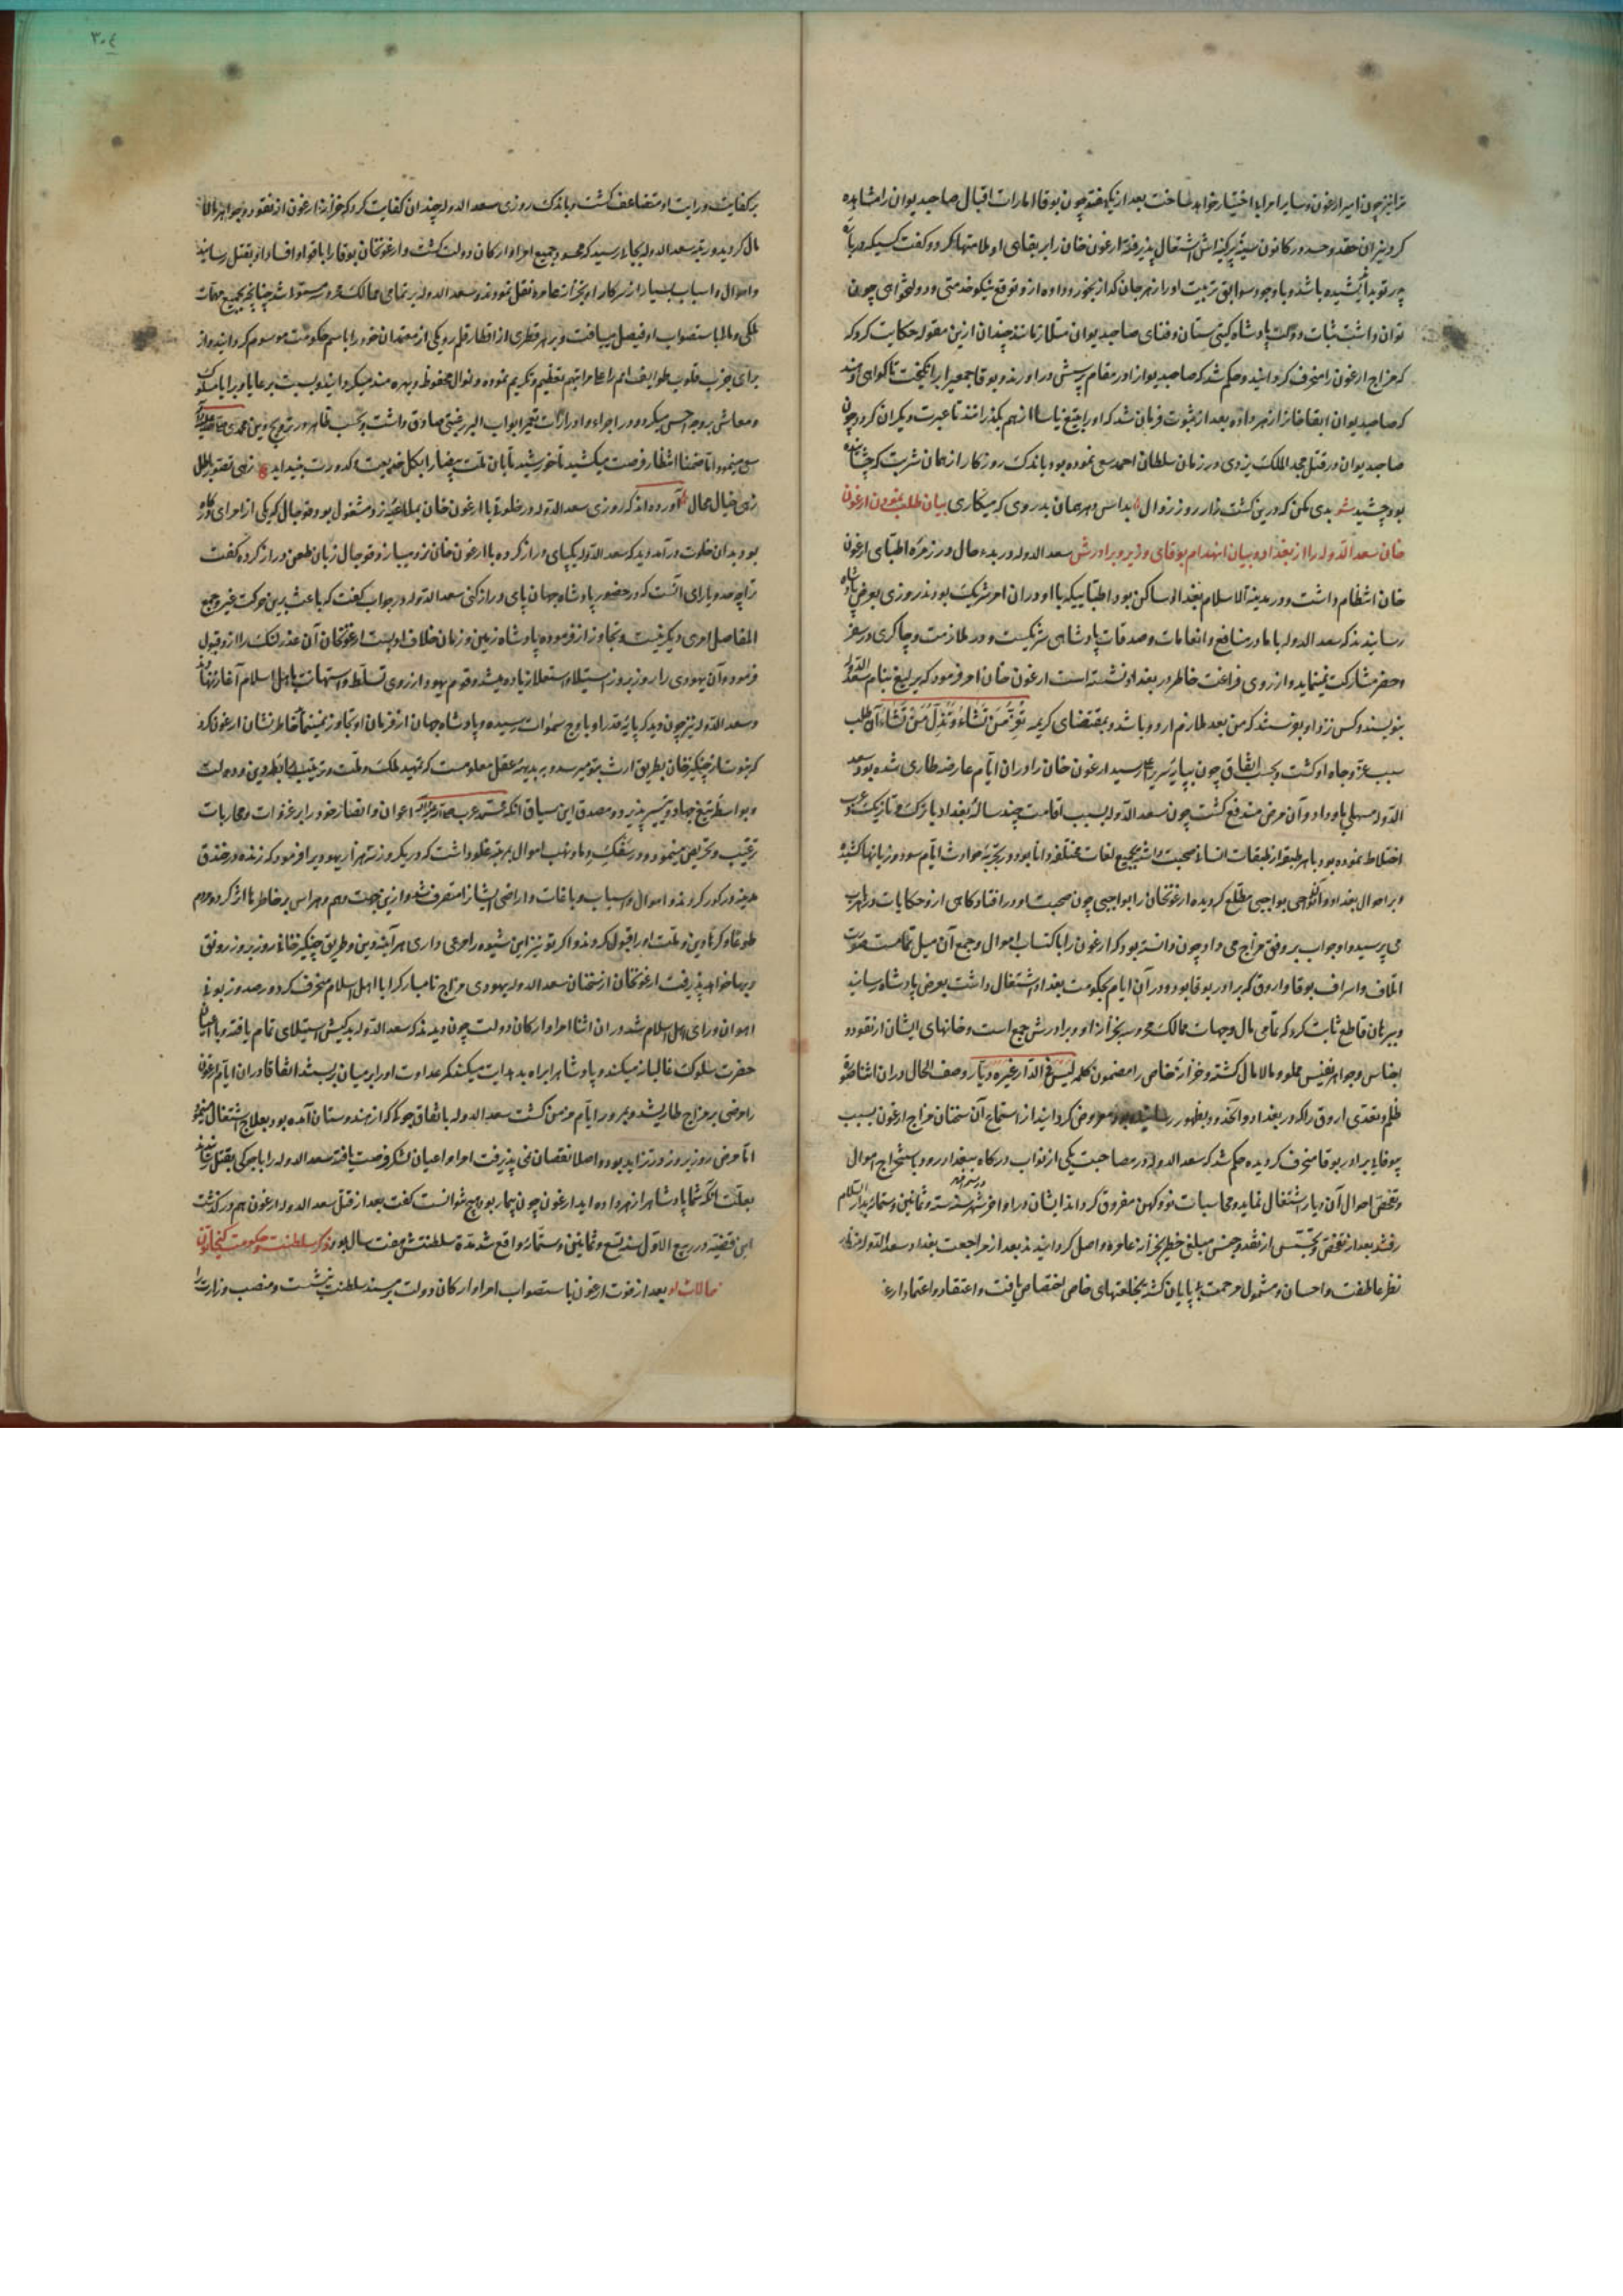 ترا نیز چون امیر ارغون و سایر امرا با اختیار خواهد ساخت بعد از یکهفته چون بوقا امارات اقبال صاحبدیوان را مشاهده
کرد نیران حقد و حسد در کانون سینهٔ پرکینه‌اش اشتعال پذیرفته ارغون خان را بر بقای او ملامتها کرد و گفت کسیکه در بارهٔ
پدر تو بد اندیشیده باشد و با وجود سوابق تربیت او را زهر جان‌گداز بخورد داده از و توقع نیکو خدمتی و دولتخواهی چون
توان داشت ثبات دولت پادشاه گیتی ستان و فنای صاحبدیوان متلازمانند چندان ازین مقوله حکایت کرد که
که مزاج ارغون را منحرف گردانید و حکم شد که صاحبدیوانرا در مقام پرسش درآورند و بوقا جمعیرا برانگیخت تا گواهی دادند
که صاحبدیوان ابقا خانرا زهر داده بعد از ثبوت فرمان شد که او را بتیغ یاسا از هم بگذرانند تا عبرت دیگران گردد چون
صاحبدیوان در قتل مجد الملک یزدی در زمان سلطان احمد سعی نموده بود باندک روزگار از همان شربت که چشانیده
بود چشید شعر بدی مکن که درین کشت زار زود زوال بداس دهر همان بدروی که میکاری بیان طلب نمودن ارغون
خان سعد الدوله را از بغداد و بیان انهدام بوقای وزیر و برادرش سعد الدوله در بدء حال در زمرهٔ اطبای ارغون
خان انتظام داشت و در مدینة الاسلام بغداد ساکن بود و اطباییکه با او در ان امر شریک بودند روزی بعرض پادشاه
رسانیدند که سعد الدوله با ما در منافع و انعامات و صدقات پادشاهی شریکست و در ملازمت و چاکری و سفر
و حضر مشارکت نمینماید و از روی فراغت خاطر در بغداد نشسته است ارغون خان امر فرمود که یرلیغ بنام سعد الدوله
بنویسند و کس نزد او بفرستند که من بعد ملازم اردو باشد و بمقتضای کریمه تُعِزُّ مَن تَشاءُ وَ تُذِلُّ مَن تَشاءُ آن طلب
سبب عز و جاه او گشت و بحسب اتفاق چون بپایهٔ سریر اعلا رسید ارغون خان را در ان ایام عارضه طاری شده بود سعد
الدوله مسهلی باو داد و آن مرض مندفع گشت چون سعد الدوله بسبب اقامت چند سالهٔ بغداد با ترک و تازیک و عرب
اختلاط نموده بود با هر طبقه از طبقات انسانی صحبت داشته بجمیع لغات مختلفه دانا بود و در تجربهٔ حوادث ایام سود و زیانها کشیده
و بر احوال بغداد و آن نواحی بواجبی مطلع گردیده ارغونخان را با او اجبی چون صحبت او در افتاد گاهی از و حکایات
می‌پرسید و او جواب بر وفق مزاج می داد و چون دانسته بود که ارغون را باکتساب اموال و جمع آن میل تمامست صورت
اتلاف و اسراف بوقا و اروق که برادر بوقا بود و در آن ایام بحکومت بغداد اشتغال داشت بعرض پادشاه رسانید
و ببرهان قاطع ثابت کرد که تمامی مال و جهات ممالک محروسه بخزانهٔ او و برادرش جمع است و خانهای ایشان از نقود و
اجناس و جواهر نفیس مملو و مالامال گشته و خزانهٔ خاص را مضمون کلمه لیس فی الدار غیره دیار وصف الحال و در ان اثنا صورة
ظلم و تعدی اروق را که در بغداد و آنحدود بظهور رسانیده بود معروض گردانید از استماع آن سخنان مزاج ارغون بسبب
بوقا و برادر بوقا منحرف گردیده حکم شد که سعد الدوله در مصاحبت یکی از نواب درگاه ببغداد رود و باستخراج اموال
و تفحص احوال آن دیار اشتغال نماید و محاسبات نو و کهن مفروق گرداند ایشان در اواخر شهر سنه ستة و ثمانین و ستمائه بدار السلام
رفتند بعد از تفحص و تجسس از نقد و جنس مبلغ خطیر بخزانهٔ عامره واصل گردانیدند بعد از مراجعت بغداد سعد الدوله منظور
نظر عاطفت و احسان و مشمول مرحمت بی پایان گشته بخلعتهای خاص اختصاص یافت و اعتقاد و اعتماد ارغون
بر کفایت و درایت او متضاعف گشت و باندک روزی سعد الدوله چندان کفایت کرد که خزانهٔ ارغون از نقود و جواهر مالا
مال گردید و رتبهٔ سعد الدوله بجائی رسید که محسود جمیع امرا و ارکان دولت گشت و ارغونخان بوقا را با قوام و افساد او بقتل رسانید
و اموال و اسباب بسیار از سرکار او بخزانهٔ عامره نقل نمودند و سعد الدوله بر تمامی ممالک محروسه مستولی شد چنانچه جمیع مهمات
ملکی و مالی باستصواب او فیصل مییافت و بر هر قطری از اقطار قلمرو یکی از معتمدان خود را باسم حکومت موسوم گردانید و از
برای جذب قلوب طوایف انام را علی مراتبهم تعظیم و تکریم نموده و نوال محظوظ و بهره مند میگردانید و نسبت برعایا و برایا سلوک
و معاش بر وجه احسن میکرد و در اجراء و ادرارات و تعمیر ابواب البر رغبتی صادق داشت و بحسب ظاهر در ترویج دین محمدی صلی الله علیه و آله
سعی مینمود اما ضمنا انتظار فرصت میکشید تا خورشید تابان ملت بیضا را بگل خدیعت و کدورت بینداید زهی تصور باطل
زهی خیال محال آورده‌اند که روزی سعد الدوله در خلوت با ارغون خان بملاعبهٔ نرد مشغول بود قوجال که یکی از امرای درگاه
بود بدان خلوت درآمد دید که سعد الدوله یکپای دراز کرده با ارغون خان نرد میبازد قوجال زبان طعن دراز کرده گفت
ترا چه حد و یارای آنست که در حضور پادشاه جهان پای دراز کنی سعد الدوله در جواب گفت که باعث برین حرکت غیر وجع
المفاصل امری دیگر نیست و تجاوز از فرموده پادشاه زمین و زمان خلاف ادبست ارغونخان آن عذر لنگ را از و قبول
فرمود و آن یهودی را روز بروز استیلا و استعلا زیاده میشد و قوم یهود از روی تسلط و استهانت باهل اسلام آغاز نهادند
و سعد الدوله نیز چون دید که پایهٔ قدر او باوج سموات رسیده و پادشاه جهان از فرمان او تجاوز نمینماید خاطر نشان ارغون کرد
که نبوت از چنگیز خان بطریق ارث بتو میرسد و بر بدیههٔ عقل معلومست که تمهید ملک و ملت و ترتیب دین و دولت
و بواسطهٔ تیغ جهاد تیسیر پذیرد و مصدق این سیاق آنکه محمد عرب صلی الله علیه و آله اعوان و انصار خود را بر غزوات و محاربات
ترغیب و تحریص مینمود و در سفک دماء و نهب اموال بمرتبهٔ غلو داشت که در یکروز سه هزار یهود را فرمود که زنده در خندق
مدینه در گور کردند و اموال و اسباب و باغات و اراضی ایشانرا متصرف شد و ازین جهت وهم و هراس بر خاطرها اثر کرد و مردم
طوعا و کرها دین و ملت او را قبول کردند و اگر تو نیز این شیوه را مرعی داری هر آینه دین و طریق چنگیز خانی روز بروز رونق
و بها خواهد پذیرفت ارغونخان از سخنان سعد الدوله یهودی مزاج نامبارکرا با اهل اسلام منحرف کرد و در صدد زبونی
اهوان ورای اهل اسلام شد در ان اثنا امرا و ارکان دولت چون دیدند که سعد الدوله بدکیش استیلای تمام یافته و با اعیان
حضرت سلوک غالبانه میکند و پادشاه را براه بد هدایت میکند کمر عداوت او را بر میان بستند اتفاقا در ان ایام ارغون
را مرضی بر مزاج طاری شد و بمرور ایام مزمن گشت سعد الدوله باتفاق جوکی که از هندوستان آمده بود بعلاج اشتغال مینمود
اما مرض روز بروز در تزاید بود و اصلا نقصان نمی پذیرفت امرا و اعیان لشکر فرصت یافته سعد الدوله را با جوکی بقتل رسانیدند
بعلت آنکه شما پادشاه را زهر داده اید ارغون چون بیمار بود هیچ نتوانست گفت بعد از قتل سعد الدوله ارغون هم درگذشت
این قضیه در ربیع الاول سنه تسع و ثمانین و ستمائه واقع شد مدة سلطنتش هفت سال بود ذکر سلطنت و حکومت کیخاتون
حالات او بعد از فوت ارغون باستصواب امرا و ارکان دولت بر مسند سلطنت نشست و منصب وزارت را
۳۰٤